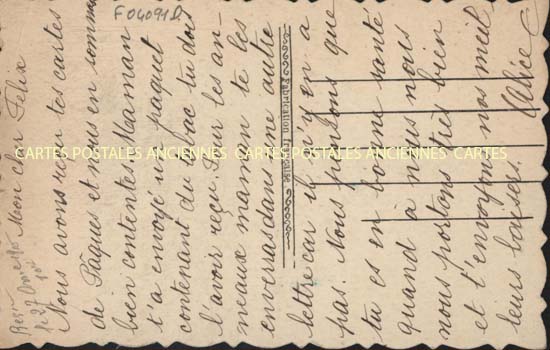 F04091D
Mon cher Félix
Nous avons reçu tes cartes
de Pâques et nous en sommes
bien contentes. Maman
t'a envoyé un paquet
contenant du
l'avoir reçu. Pour les an-
neaux maman te les
enverra dans une autre
Fabrication Française
lettre car il n'y en a
pas. Nous pensons que
tu es en bonne santé
quand à nous nous
nous portons très bien
et t'envoyons nos meil
leurs baisers. Alice
CARTES POSTALES ANCIENNES CARTES POSTALES ANCIENNES CARTES POSTALES ANCIENNES